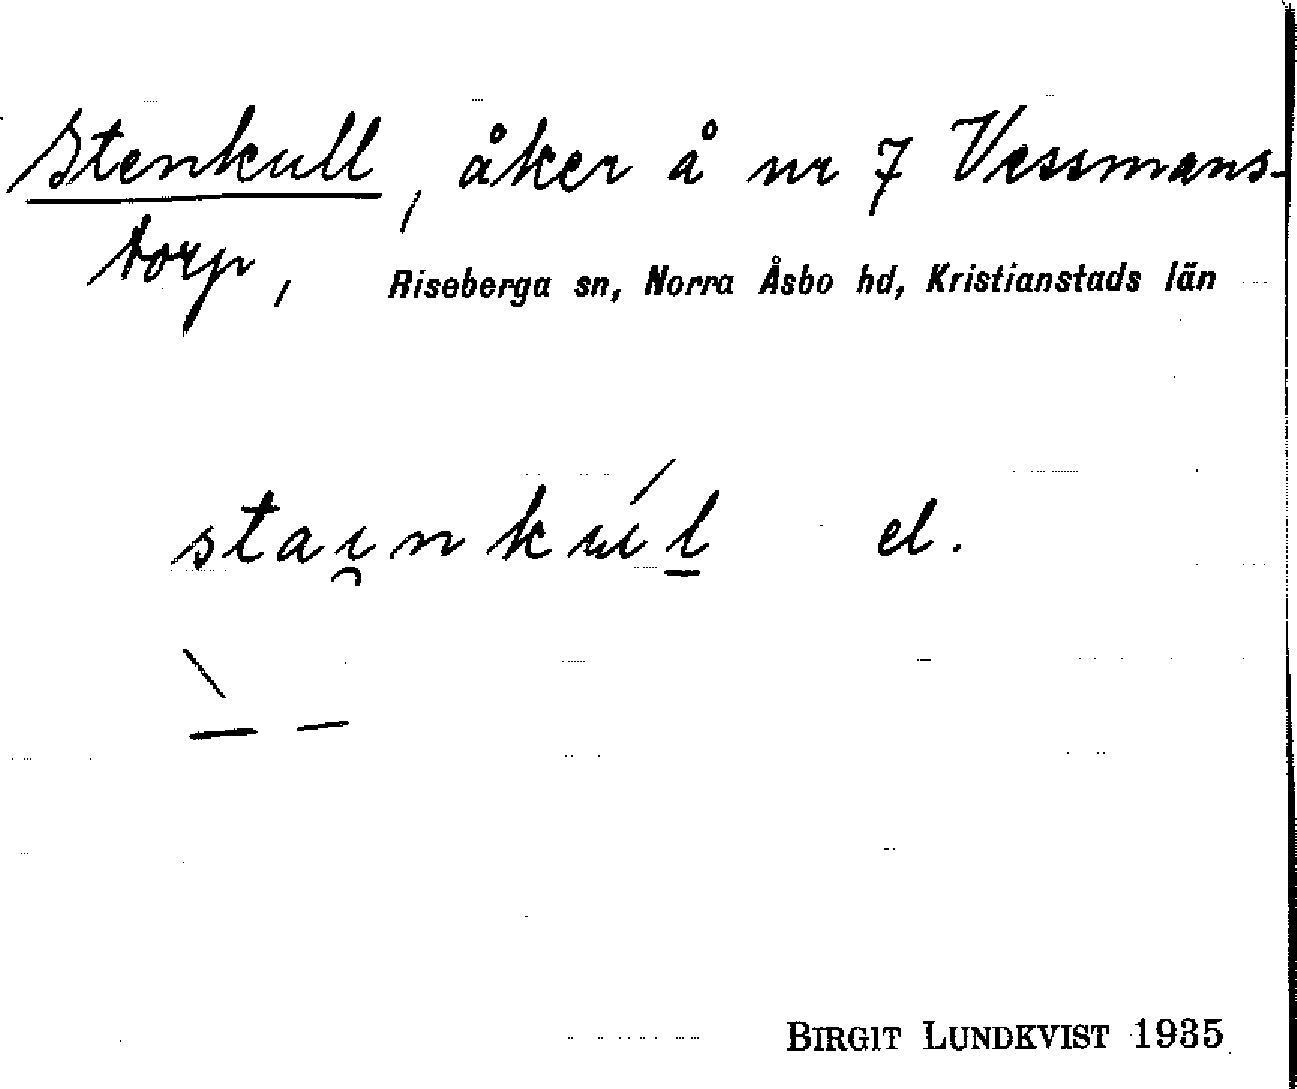 Stenkull, åker å nr 7 Vessmans-
torp, Riseberga sn, Norra Åsbo hd, Kristianstads län
stai̯nkúl̲ el.
BIRGIT LUNDKVIST 1935